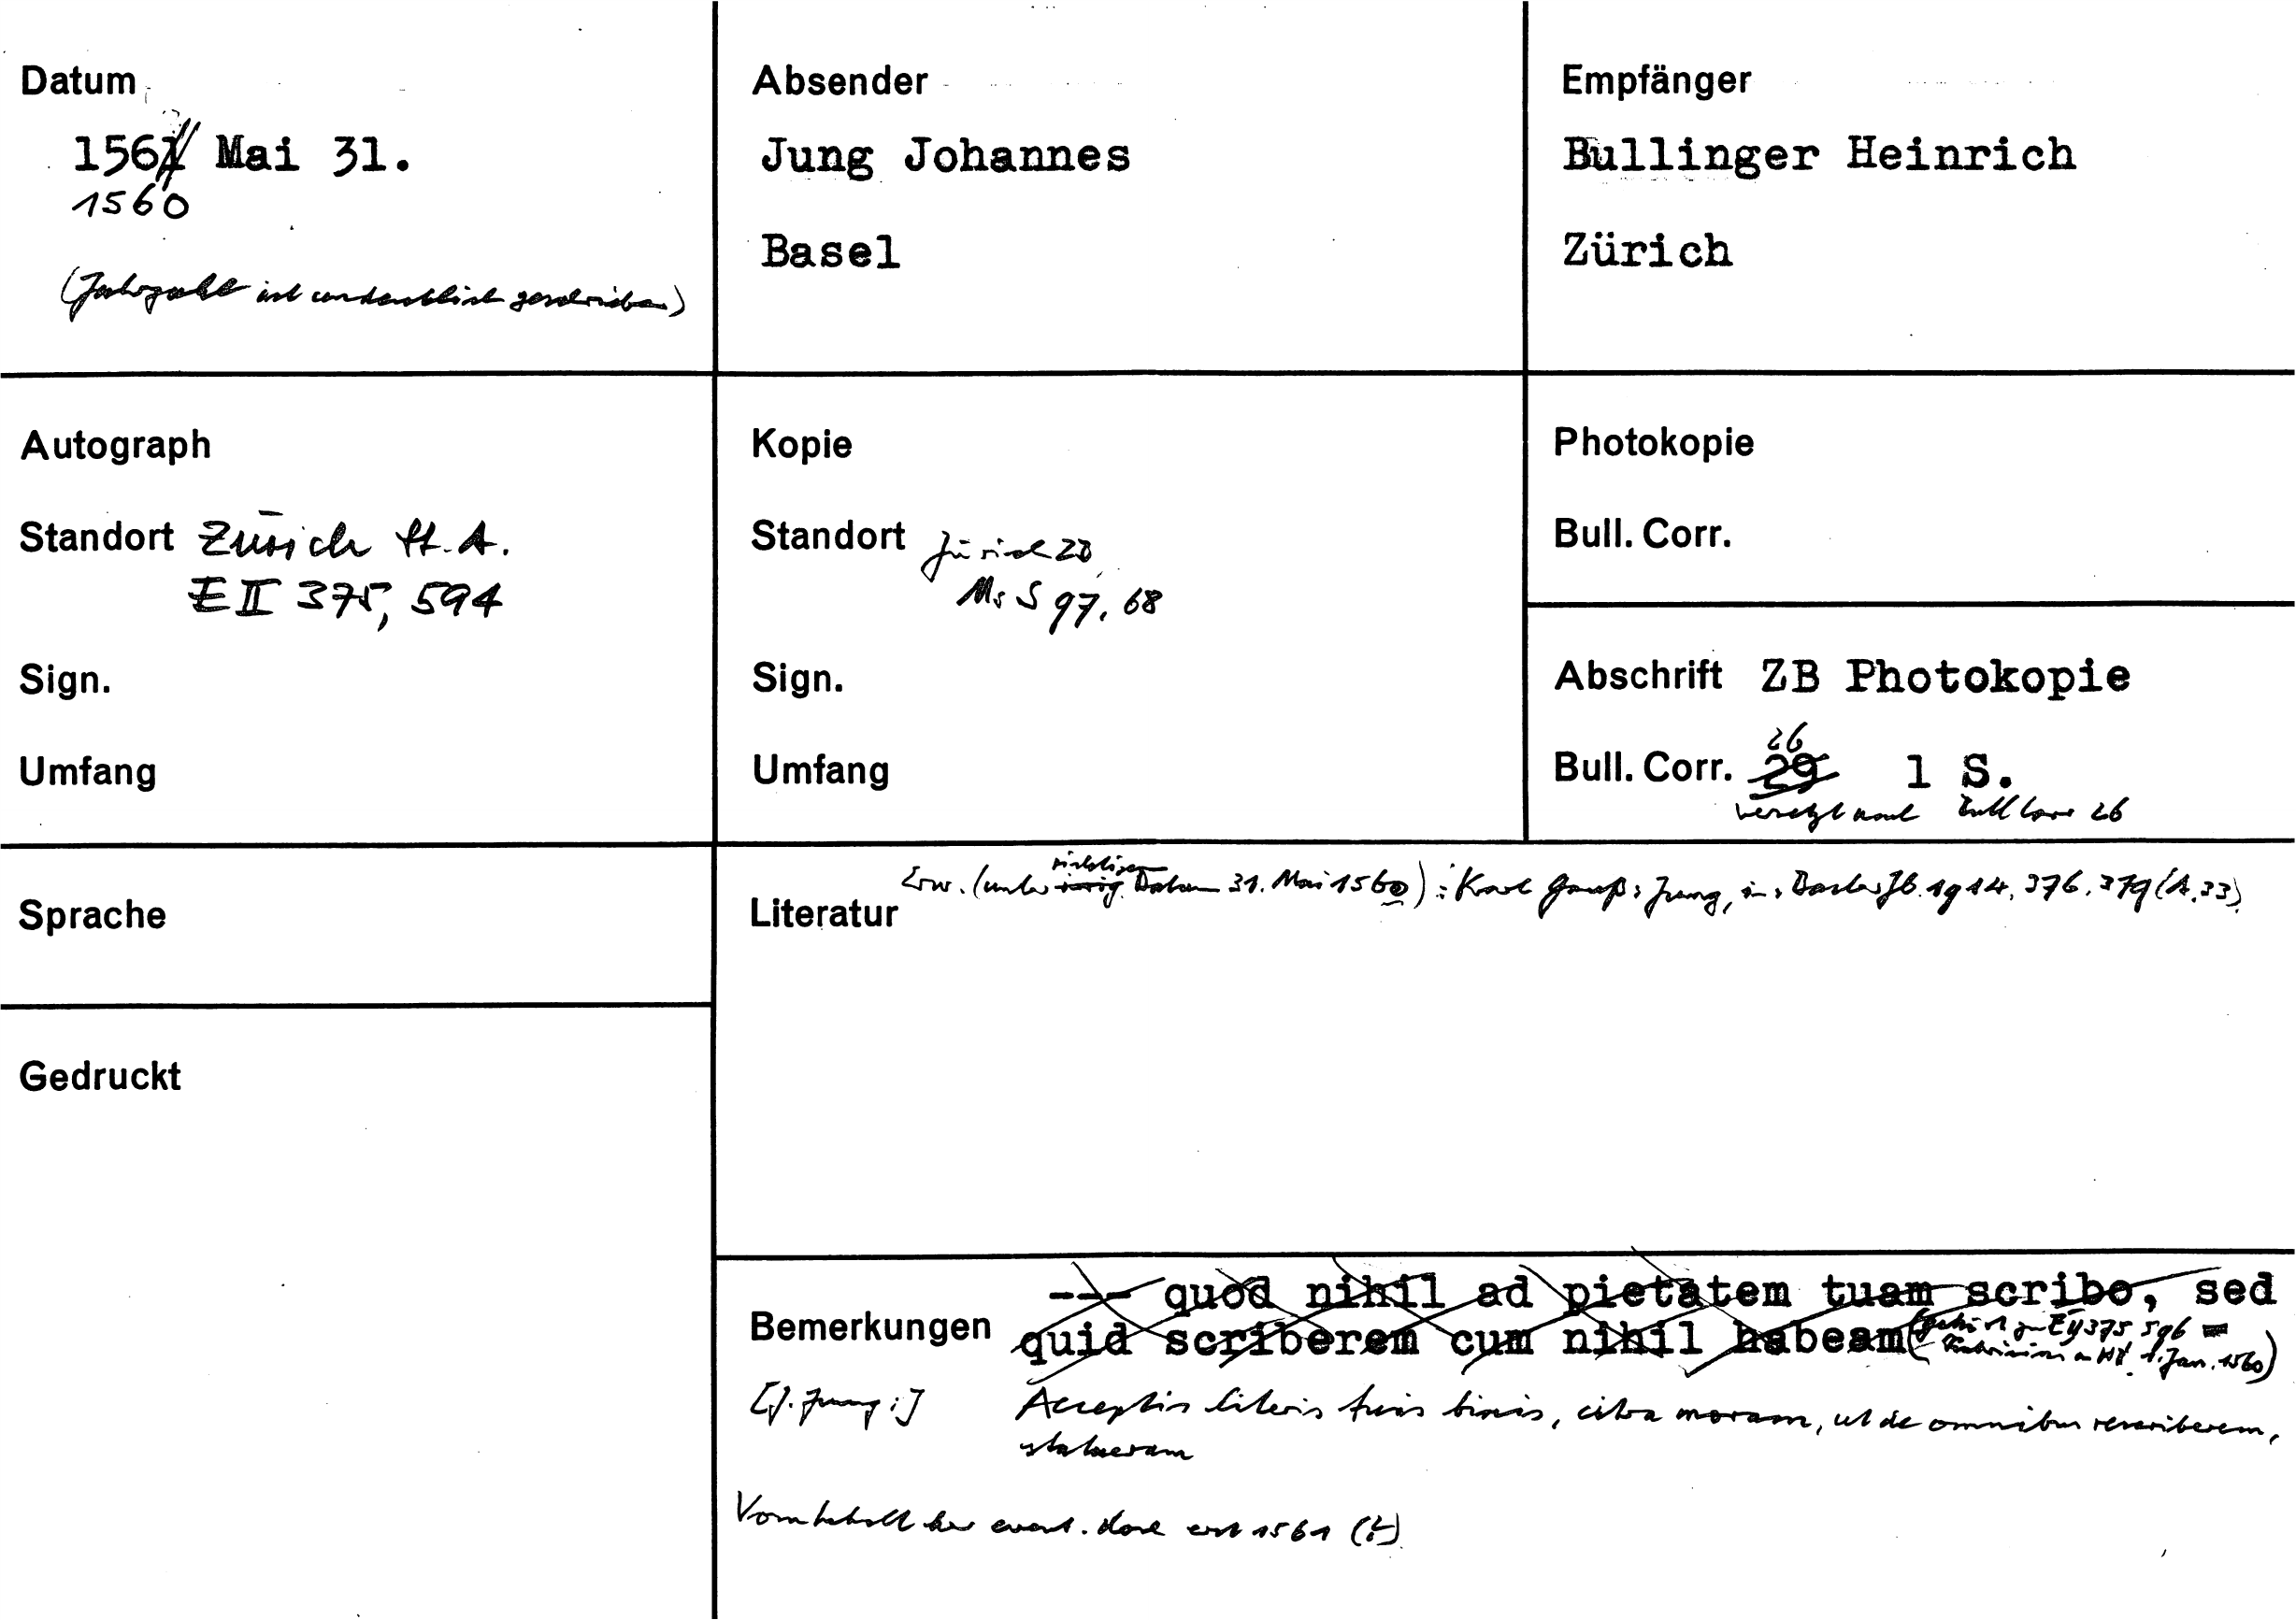 Datum
1561 Mai 31.
1560
(Jahrzahl ist undeutlich geschrieben)
Absender
Jung Johannes
Basel
Empfänger
Bullinger Heinrich
Zürich
Autograph
Standort Zürich St. A.
E II 375, 594
Sign.
Umfang
Kopie
Standort Zürich ZB
Ms S 97, 68
Sign.
Umfang
Photokopie
Bull. Corr.
Abschrift ZB Photokopie
26
Bull. Corr. 29 1 S.
versetzt nach Bull Corr 26
Sprache
Gedruckt
richtigem
Literatur Erw. (unter irrig. Datum 31. Mai 1560): Karl Gauß: Jung, in: Basler Jb. 1914, 376. 379 (A. 33)
Bemerkungen --- quod nihil ad pietatem tuam scribo, sed
quid scriberem cum nihil habeam (gehört zu E II 375, 596 =
1. Jan. 1560)
[J. Jung:] Acceptis literis tuis binis, citra moram, ut de omnibus rescriberem,
statueram
Vom Inhalt her event. doch erst 1561 (?)